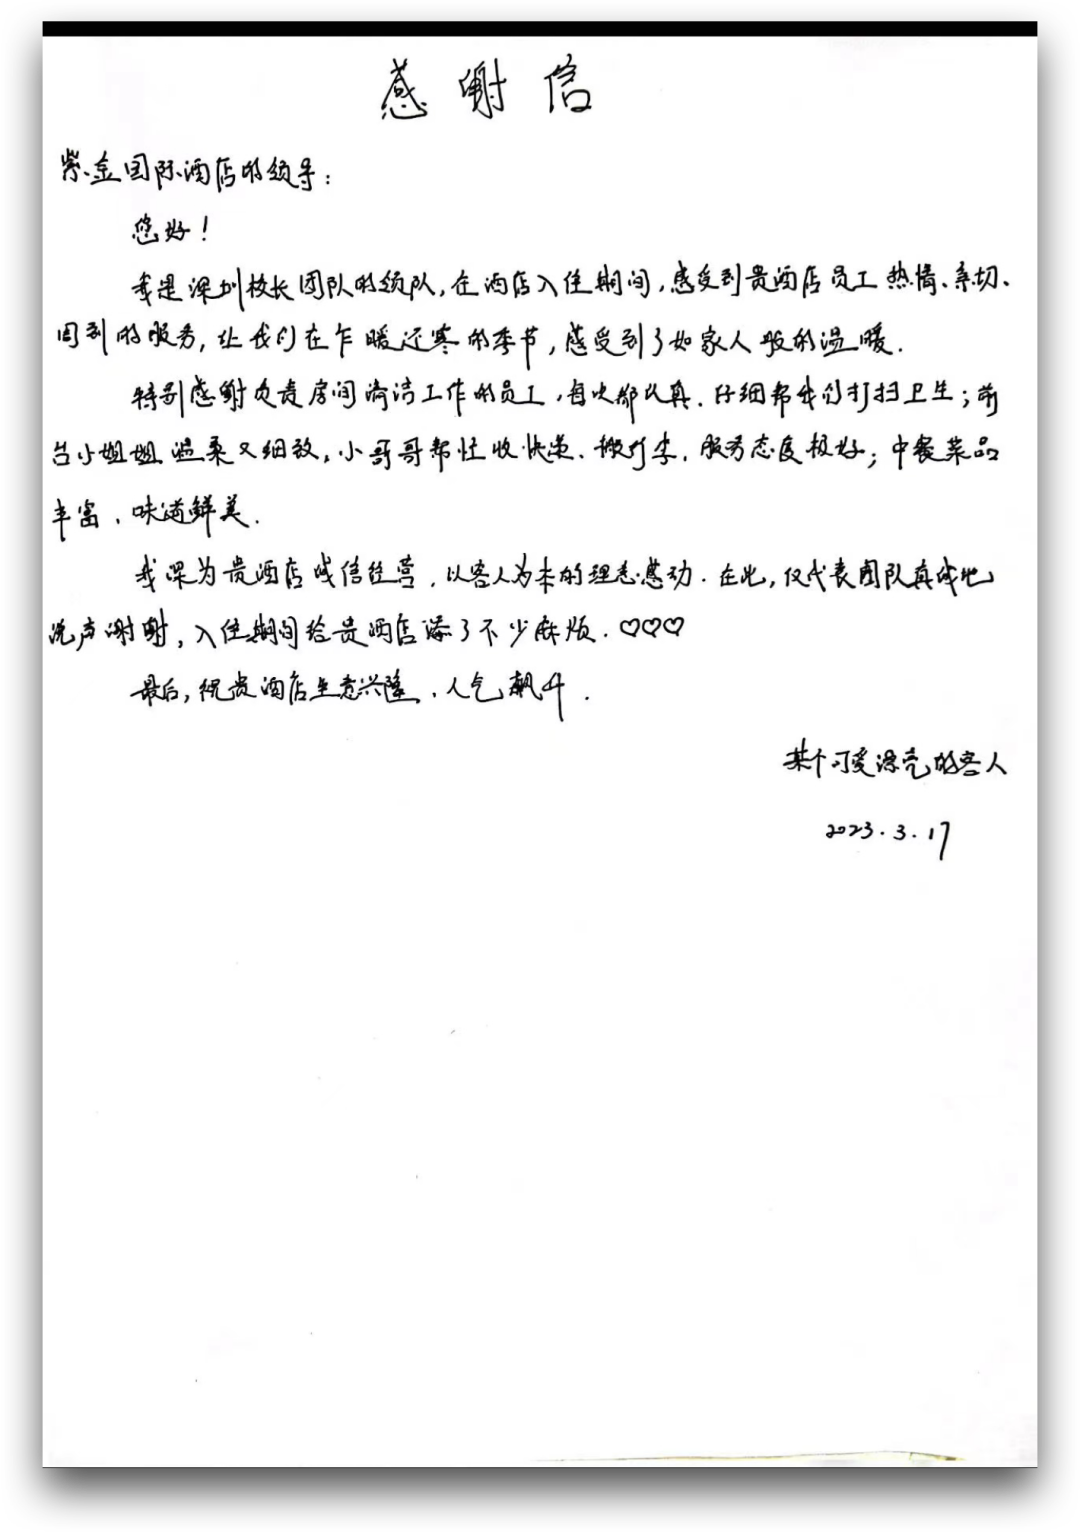 感谢信
紫金国际酒店的领导：
您好！
我是深圳校长团队的领队，在酒店入住期间，感受到贵酒店员工热情、亲切、
周到的服务，让我们在乍暖还寒的季节，感受到了如家人般的温暖.
特别感谢负责房间清洁工作的员工，每次都认真、仔细帮我们打扫卫生；前
台小姐姐温柔又细致，小哥哥帮忙收快递、搬行李，服务态度极好；中餐菜品
丰富、味道鲜美.
我深为贵酒店诚信经营、以客人为本的理念感动.在此，仅代表团队真诚地
说声谢谢，入住期间给贵酒店添了不少麻烦.♡♡♡
最后，祝贵酒店生意兴隆、人气飙升.
某个可爱漂亮的客人
2023.3.17